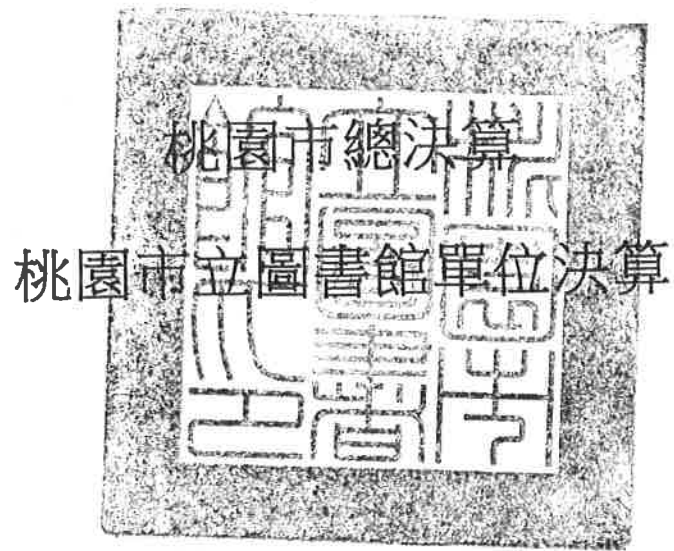 桃園市總決算
桃園市立圖書館單位決算